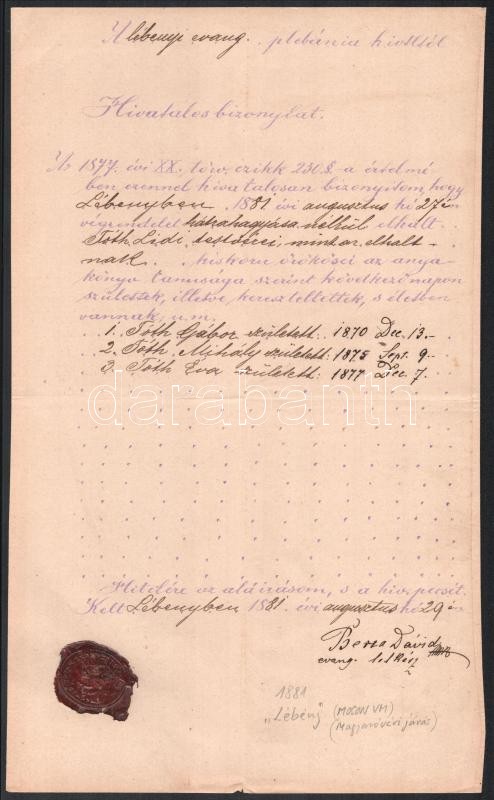 A lébenyi evang. plébánia hivtltól
Hivatalos bizonylat.
Az 1877. évi XX. törv. czikk 230.§.-a értelmé
ben ezennel hiva talosan bizonyitom, hogy
Lébenyben 1881 évi augusztus hó 27 én
végrendelet hátrahagyása nélkül elhalt
Tóth Lidi, testvérei, mint az elhalt-
nak kiskoru örökösei az anya-
könyv tanusága szerint következő napon
születtek, illetve, keresztelttettek, s életben
vannak, u.m.
1. Tóth Gábor született: 1870 Dec. 13.
2. Tóth Mihály született: 1875 Sept. 9.
3. Tóth Éva született: 1877 Dec. 7.
darabanth
Hitelére az aláirásom, s a hiv. pecsét.
Kelt Lébenyben 1881. évi augusztus hó 29 én
Dávid
evang. lelkész
1881
„Lébény" (MOSON VM)
(Magyaróvári járás)